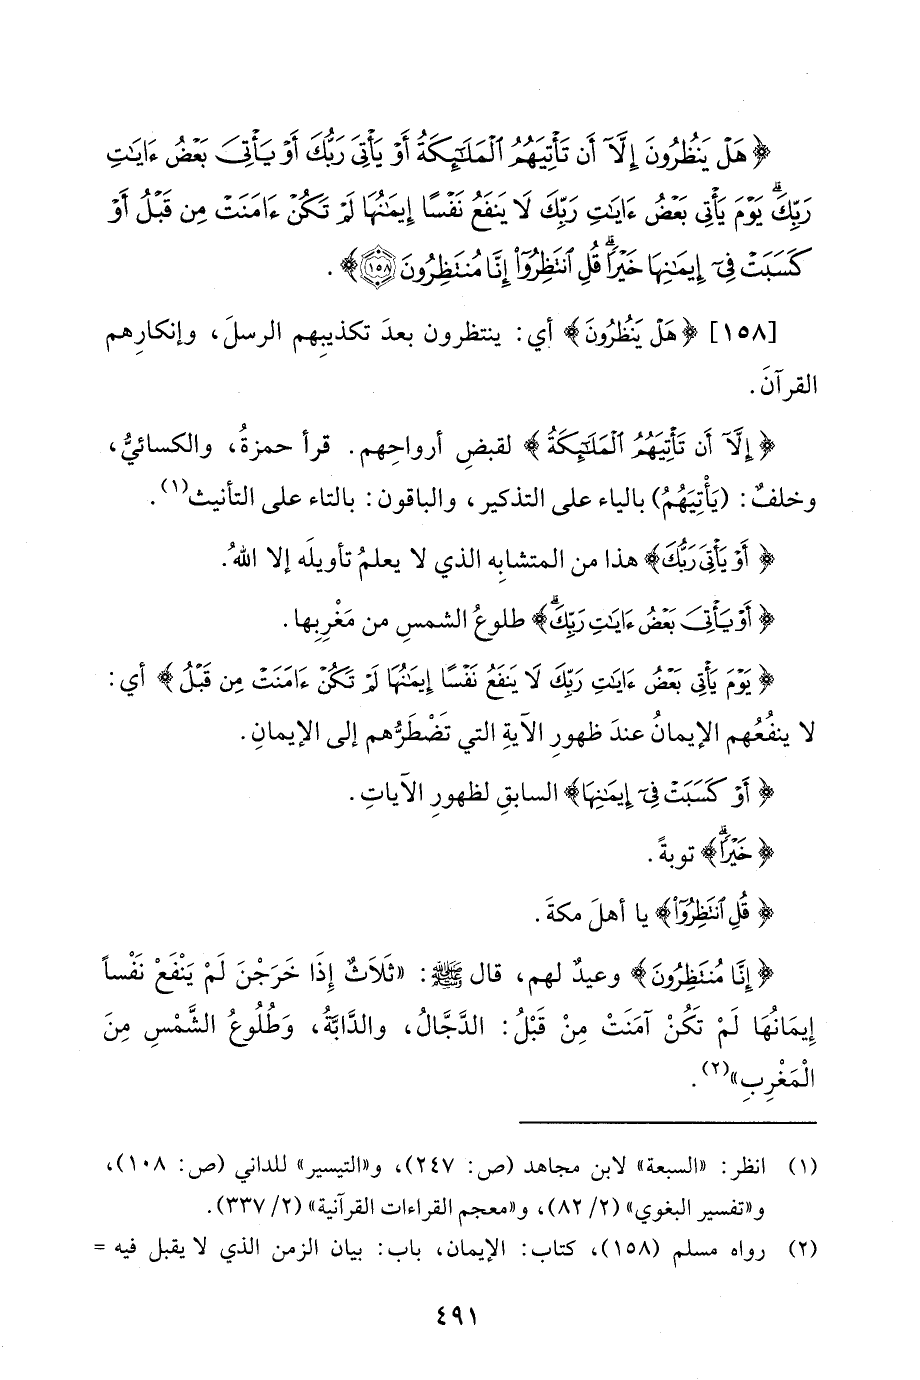 ﴿ هَلْ يَنظُرُونَ إِلَّآ أَن تَأْتِيَهُمُ ٱلْمَلَٰٓئِكَةُ أَوْ يَأْتِىَ رَبُّكَ أَوْ يَأْتِىَ بَعْضُ ءَايَٰتِ
رَبِّكَ ۗ يَوْمَ يَأْتِى بَعْضُ ءَايَٰتِ رَبِّكَ لَا يَنفَعُ نَفْسًا إِيمَٰنُهَا لَمْ تَكُنْ ءَامَنَتْ مِن قَبْلُ أَوْ
كَسَبَتْ فِىٓ إِيمَٰنِهَا خَيْرًا ۗ قُلِ ٱنتَظِرُوٓا۟ إِنَّا مُنتَظِرُونَ ١٥٨ ﴾ .
[١٥٨] ﴿ هَلْ يَنظُرُونَ ﴾ أي: ينتظرون بعدَ تكذيبِهم الرسلَ، وإنكارِهم
القرآنَ.
﴿ إِلَّآ أَن تَأْتِيَهُمُ ٱلْمَلَٰٓئِكَةُ ﴾ لقبضِ أرواحِهم. قرأ حمزةُ، والكسائيُّ،
وخلفٌ: (يَأْتِيَهُمُ) بالياء على التذكير، والباقون: بالتاء على التأنيث(١).
﴿ أَوْ يَأْتِىَ رَبُّكَ ﴾ هذا من المتشابِه الذي لا يعلمُ تأويلَه إلا اللهُ.
﴿ أَوْ يَأْتِىَ بَعْضُ ءَايَٰتِ رَبِّكَ ۗ ﴾ طلوعُ الشمسِ من مَغْرِبِها.
﴿ يَوْمَ يَأْتِى بَعْضُ ءَايَٰتِ رَبِّكَ لَا يَنفَعُ نَفْسًا إِيمَٰنُهَا لَمْ تَكُنْ ءَامَنَتْ مِن قَبْلُ ﴾ أي:
لا ينفُعُهم الإيمانُ عندَ ظهورِ الآيةِ التي تَضْطَرُّهم إلى الإيمانِ.
﴿ أَوْ كَسَبَتْ فِىٓ إِيمَٰنِهَا ﴾ السابقِ لظهورِ الآياتِ.
﴿ خَيْرًا ۗ ﴾ توبةً.
﴿ قُلِ ٱنتَظِرُوٓا۟ ﴾ يا أهلَ مكةَ.
﴿ إِنَّا مُنتَظِرُونَ ﴾ وعيدٌ لهم، قال ﷺ: «ثَلَاثٌ إِذَا خَرَجْنَ لَمْ يَنْفَعْ نَفْساً
إِيمَانُهَا لَمْ تَكُنْ آمَنَتْ مِنْ قَبْلُ: الدَّجَّالُ، والدَّابَّةُ، وَطُلُوعُ الشَّمْسِ مِنَ
الْمَغْرِبِ»(٢).
(١) انظر: «السبعة» لابن مجاهد (ص: ٢٤٧)، و«التيسير» للداني (ص: ١٠٨)،
و«تفسير البغوي» (٢/ ٨٢)، و«معجم القراءات القرآنية» (٢/ ٣٣٧).
(٢) رواه مسلم (١٥٨)، كتاب: الإيمان، باب: بيان الزمن الذي لا يقبل فيه =
٤٩١